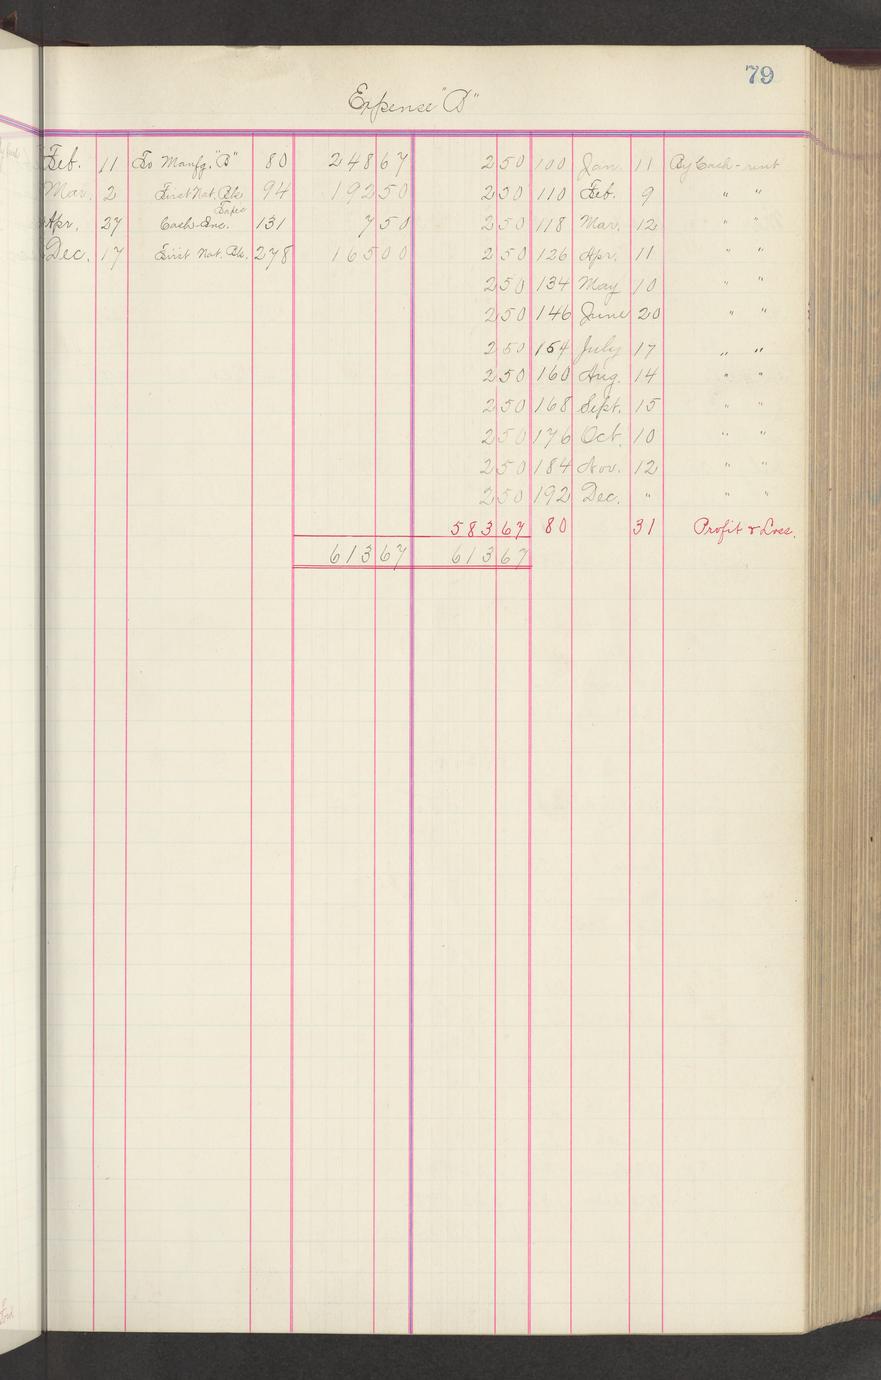 79
Expense "B"
Feb. 11 To Manfg. "B" 80 248 67 2 50 100 Jan. 11 By Cash - rent
Mar. 2 First Nat. Bk. 94 192 50 2 50 110 Feb. 9 " "
Apr. 27 Cash - Inc. 131 7 50 2 50 118 Mar. 12 " "
Dec. 17 First Nat. Bk. 278 165 00 2 50 126 Apr. 11 " "
2 50 134 May 10 " "
2 50 146 June 20 " "
2 50 154 July 17 " "
2 50 160 Aug. 14 " "
2 50 168 Sept. 15 " "
2 50 176 Oct. 10 " "
2 50 184 Nov. 12 " "
2 50 192 Dec. " " "
583 67 80 31 Profit & Loss.
613 67 613 67